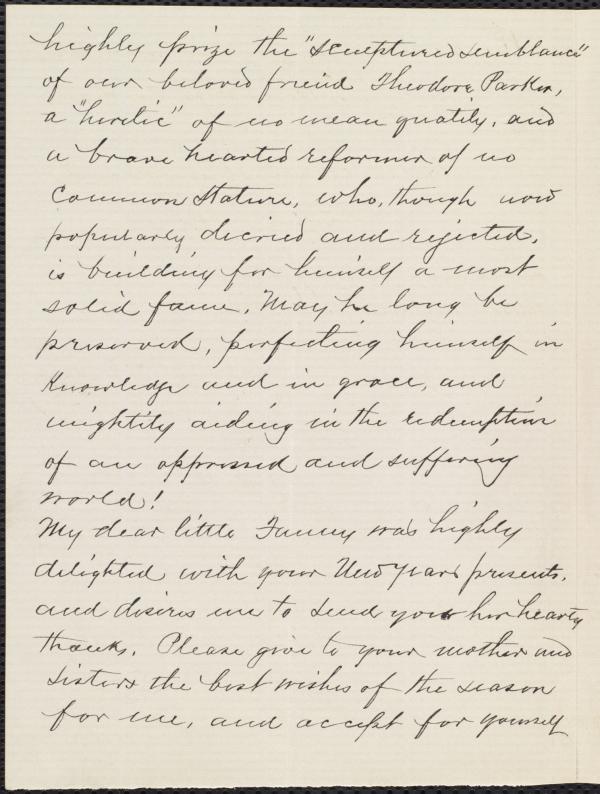 highly prize the "sculptured semblance"
of our beloved friend Theodore Parker,
a "heretic" of no mean quality, and
a brave hearted reformer of no
common stature, who, though now
popularly decried and rejected,
is building for himself a most
solid fame. May he long be
preserved, perfecting himself in
knowledge and in grace, and
mightily aiding in the redemption
of an oppressed and suffering
world!
My dear little Fanny was highly
delighted with your New Years presents,
and desires me to send you her hearty
thanks. Please give to your mother and
sisters the best wishes of the season
for me, and accept for yourself